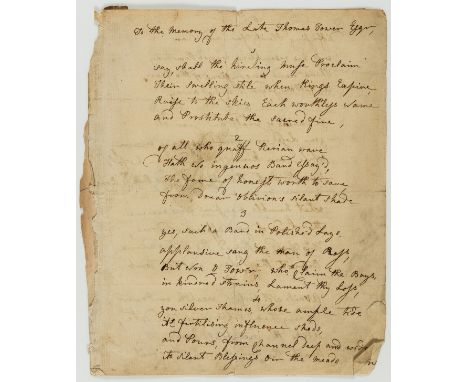 To the Memory of the Late Thomas Tower Esqr,
1
say, shall the hireling muse Proclaim
Their swelling stile when Kings Expire
Raise to the skies Each worthless name
and Prostitute the sacred fire,
2
of all who quaff Pierian wave
Hath no ingenuos Bard Essay'd,
The fame of honest worth to save
from, drear oblivion's silant shade
3
yes, such a Bard in Polished Lays
applausive sang the man of Ross,
But non O Tower, who claim the Bays,
in kindred strains, Lament thy Loss,
4
yon silver Thames whose ample tide
its fertilising influence sheds,
and Pours, from channel deep and
its silant Blessings Our the meads